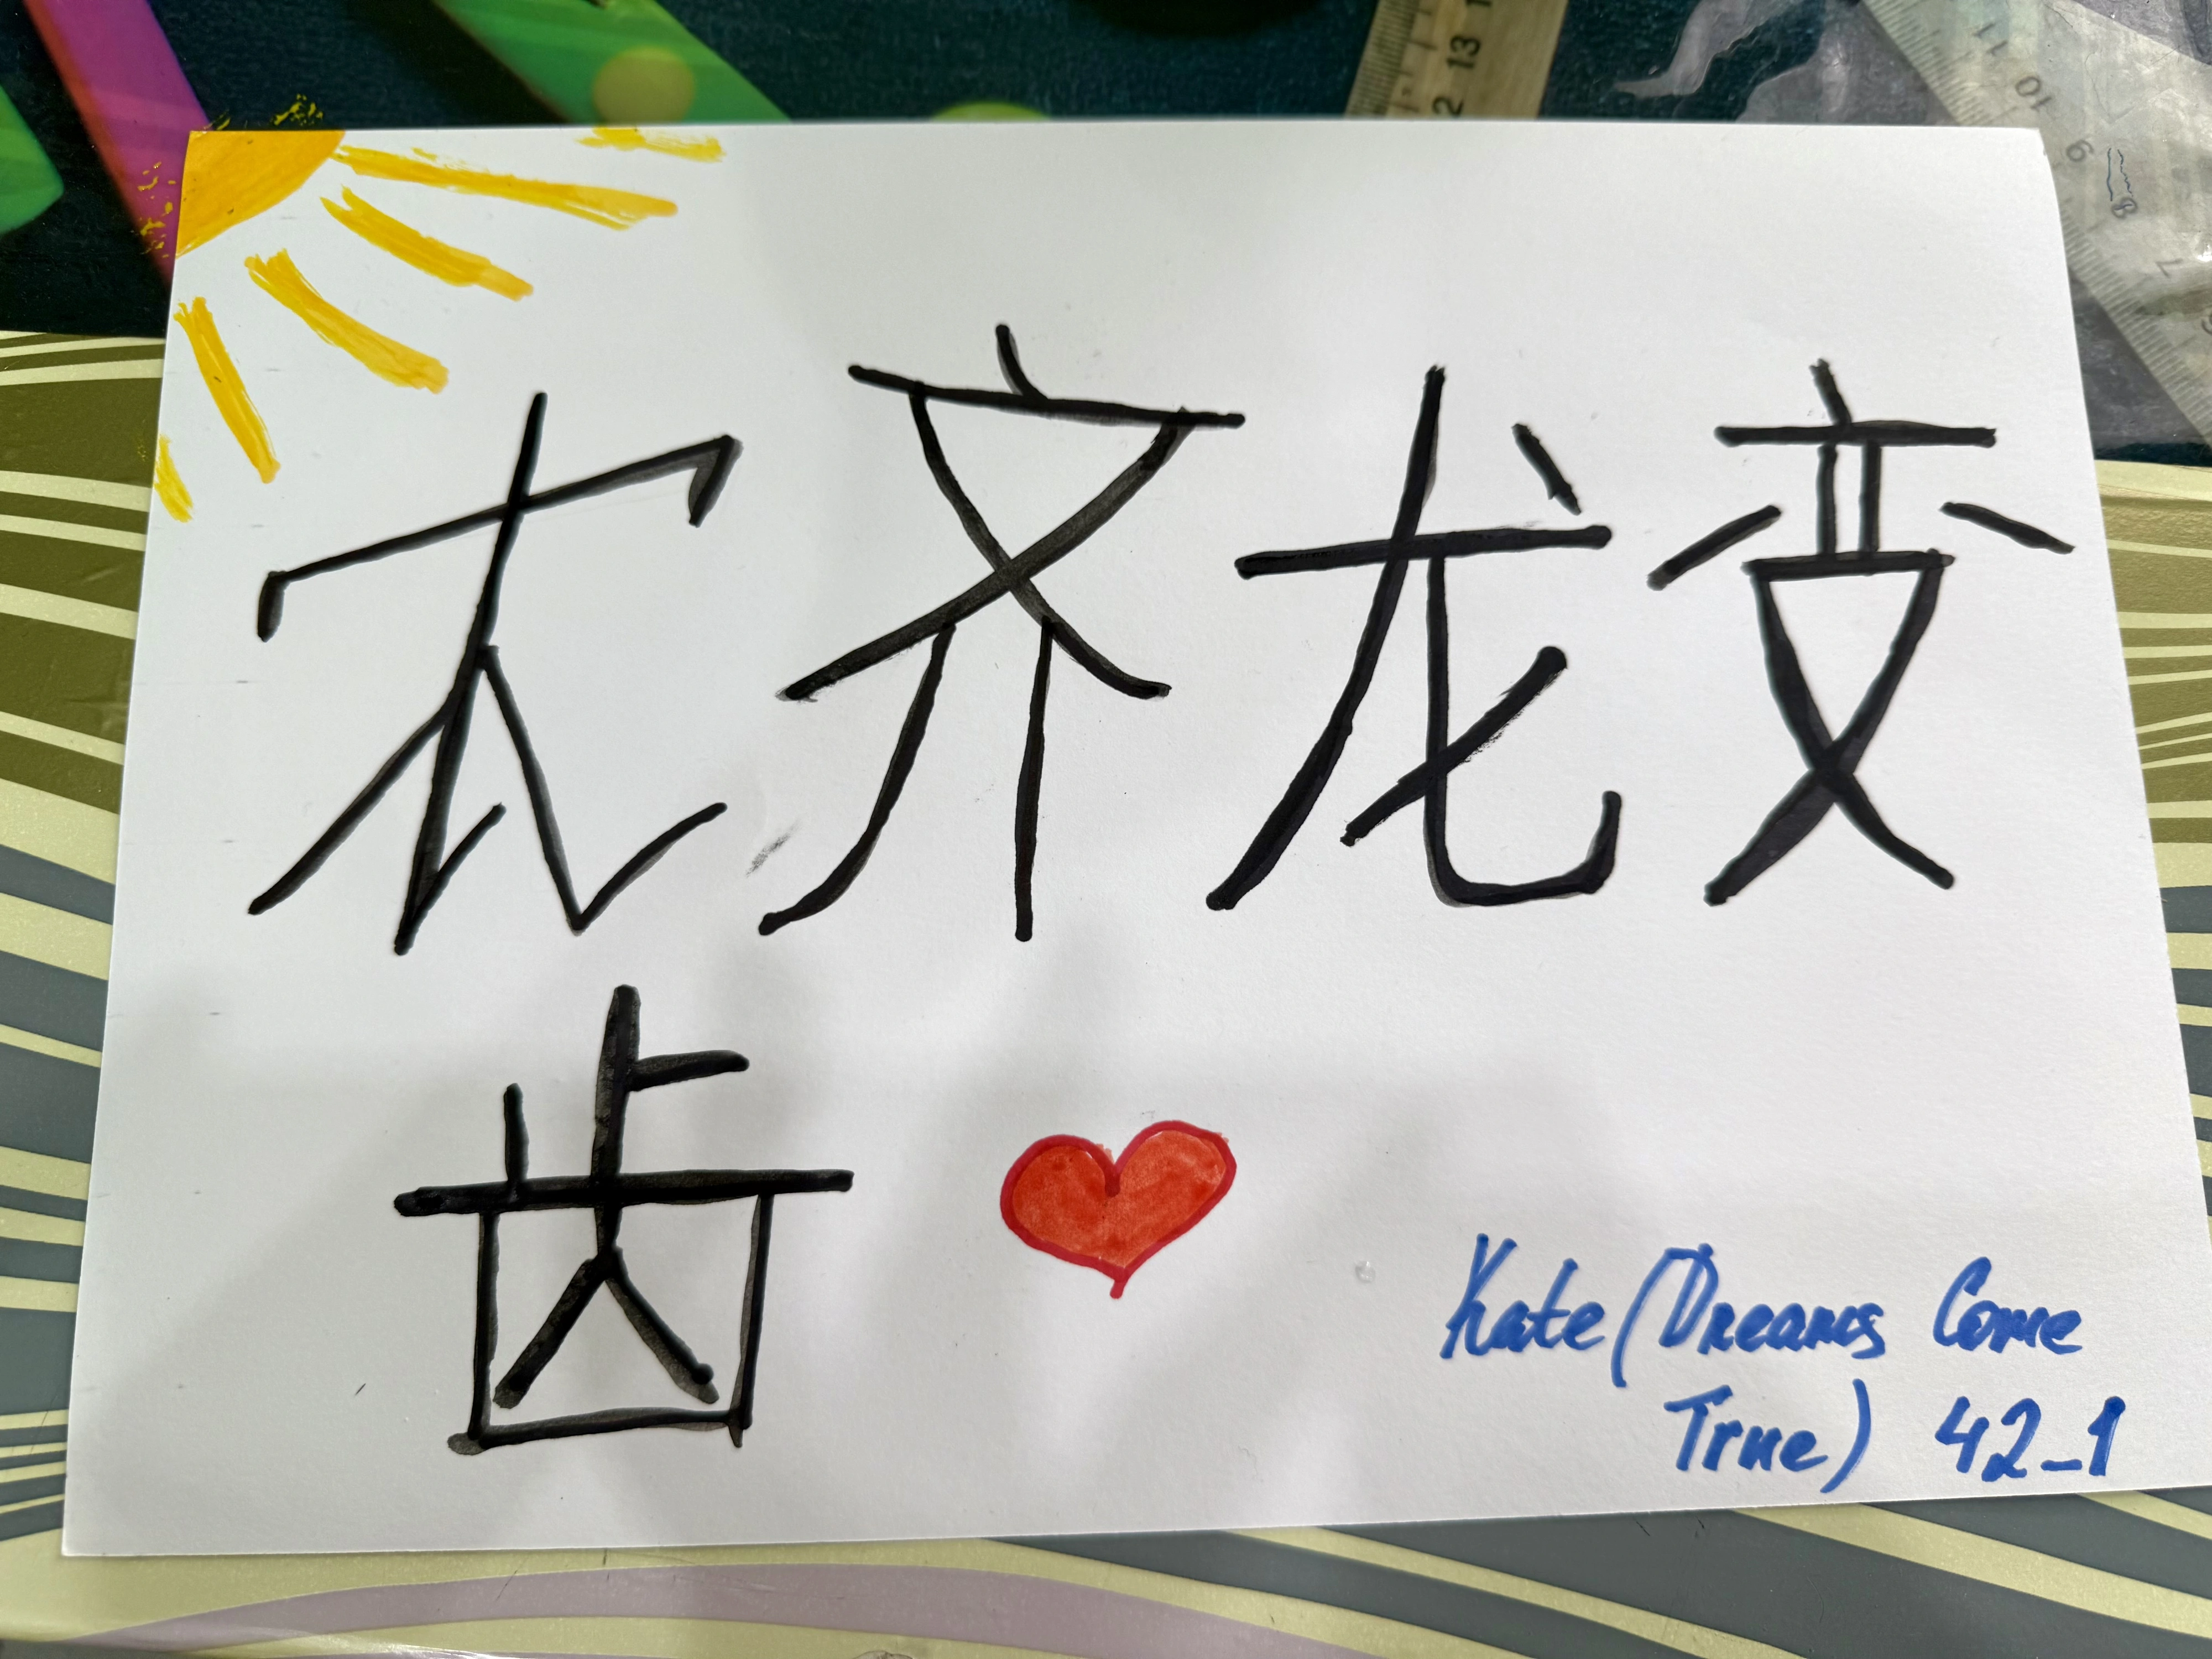 农齐龙变
齿
Kate (Dreams Come
True) 42_1
13
11
10
9
8
7